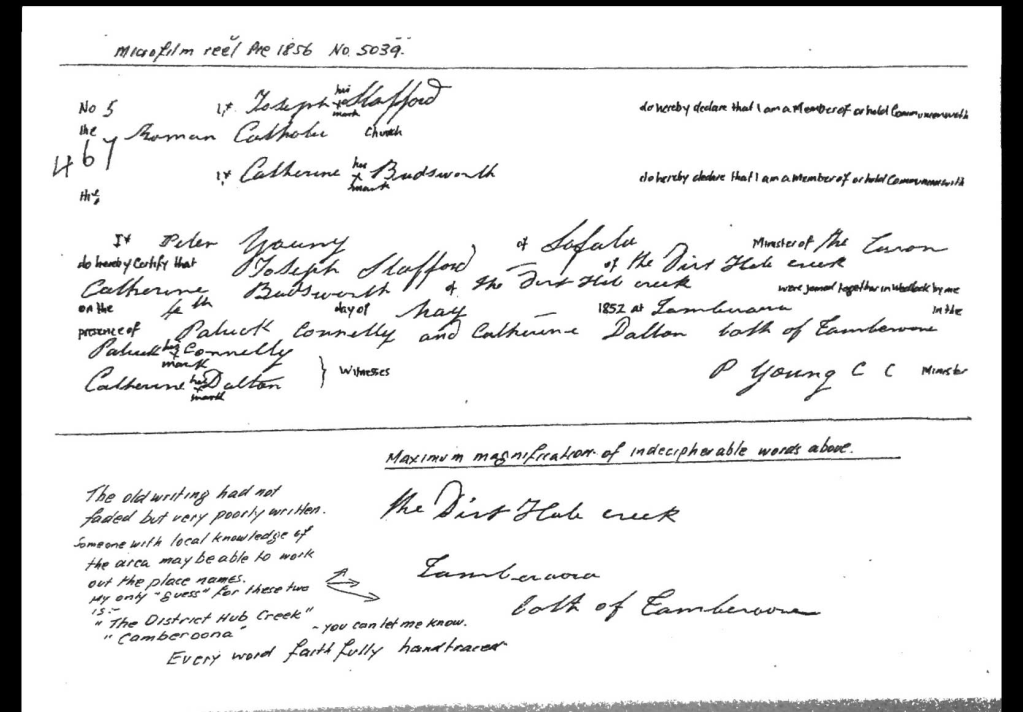 Microfilm reel Pre 1856 No. 5039.
No 5 1,* Joseph his x mark Stafford do hereby declare that I am a Member of or hold Communion with
the Roman Catholic Church
467
1* Catherine her x mark Budsworth do hereby declare that I am a Member of or hold Communion with
the
I* Peter Young of Sofala Minister of the Turon
do hereby Certify that Joseph Stafford of the Dirt Hole creek
Catherine Budsworth of the Dirt Hole creek were joined together in Wedlock by me
on the day of May 1852 at Tamberoora in the
presence of Patrick Connelly and Catherine Dalton both of Tamberoora
Patrick his x mark Connelly
Catherine her x mark Dalton } Witnesses P Young C C Minister
Maximum magnification of indecipherable words above.
The old writing had not
faded but very poorly written.
Someone with local knowledge of
the area may be able to work
out the place names.
My only "guess" for these two
is:-
"The District Hub Creek"
"Camberoona" - you can let me know.
Every word faithfully handtraced
the Dirt Hole creek
Tamberoora
both of Tamberoora